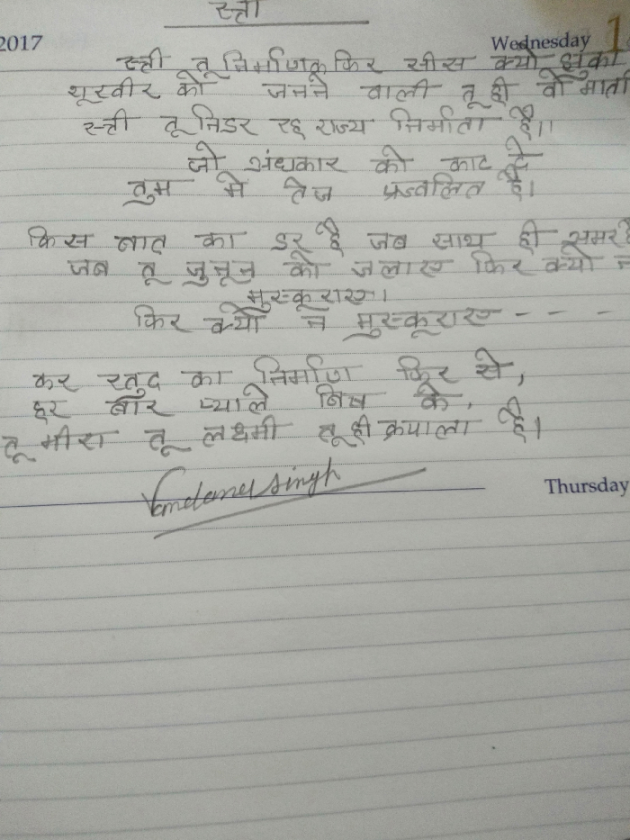 स्त्री
2017 Wednesday 1
स्त्री तू निर्माणक फिर सीस क्यो झुका
शूरवीर को जनने वाली तू ही वो माता
स्त्री तू निडर रह राज्य निर्माता है।।
जो अंधकार को काट दे
तुम मे तेज प्रज्वलित है।
किस बात का डर है जब साथ ही समर है
जब तू जुनून को जलाए फिर क्यो न
मुस्कूराए।
फिर क्यों न मुस्कूराए - - - -
कर खुद का निर्माण फिर से,
हर बार प्याले विष के,
तू मीरा तू लक्ष्मी तू ही क्रपाला है।
Vandana singh
Thursday